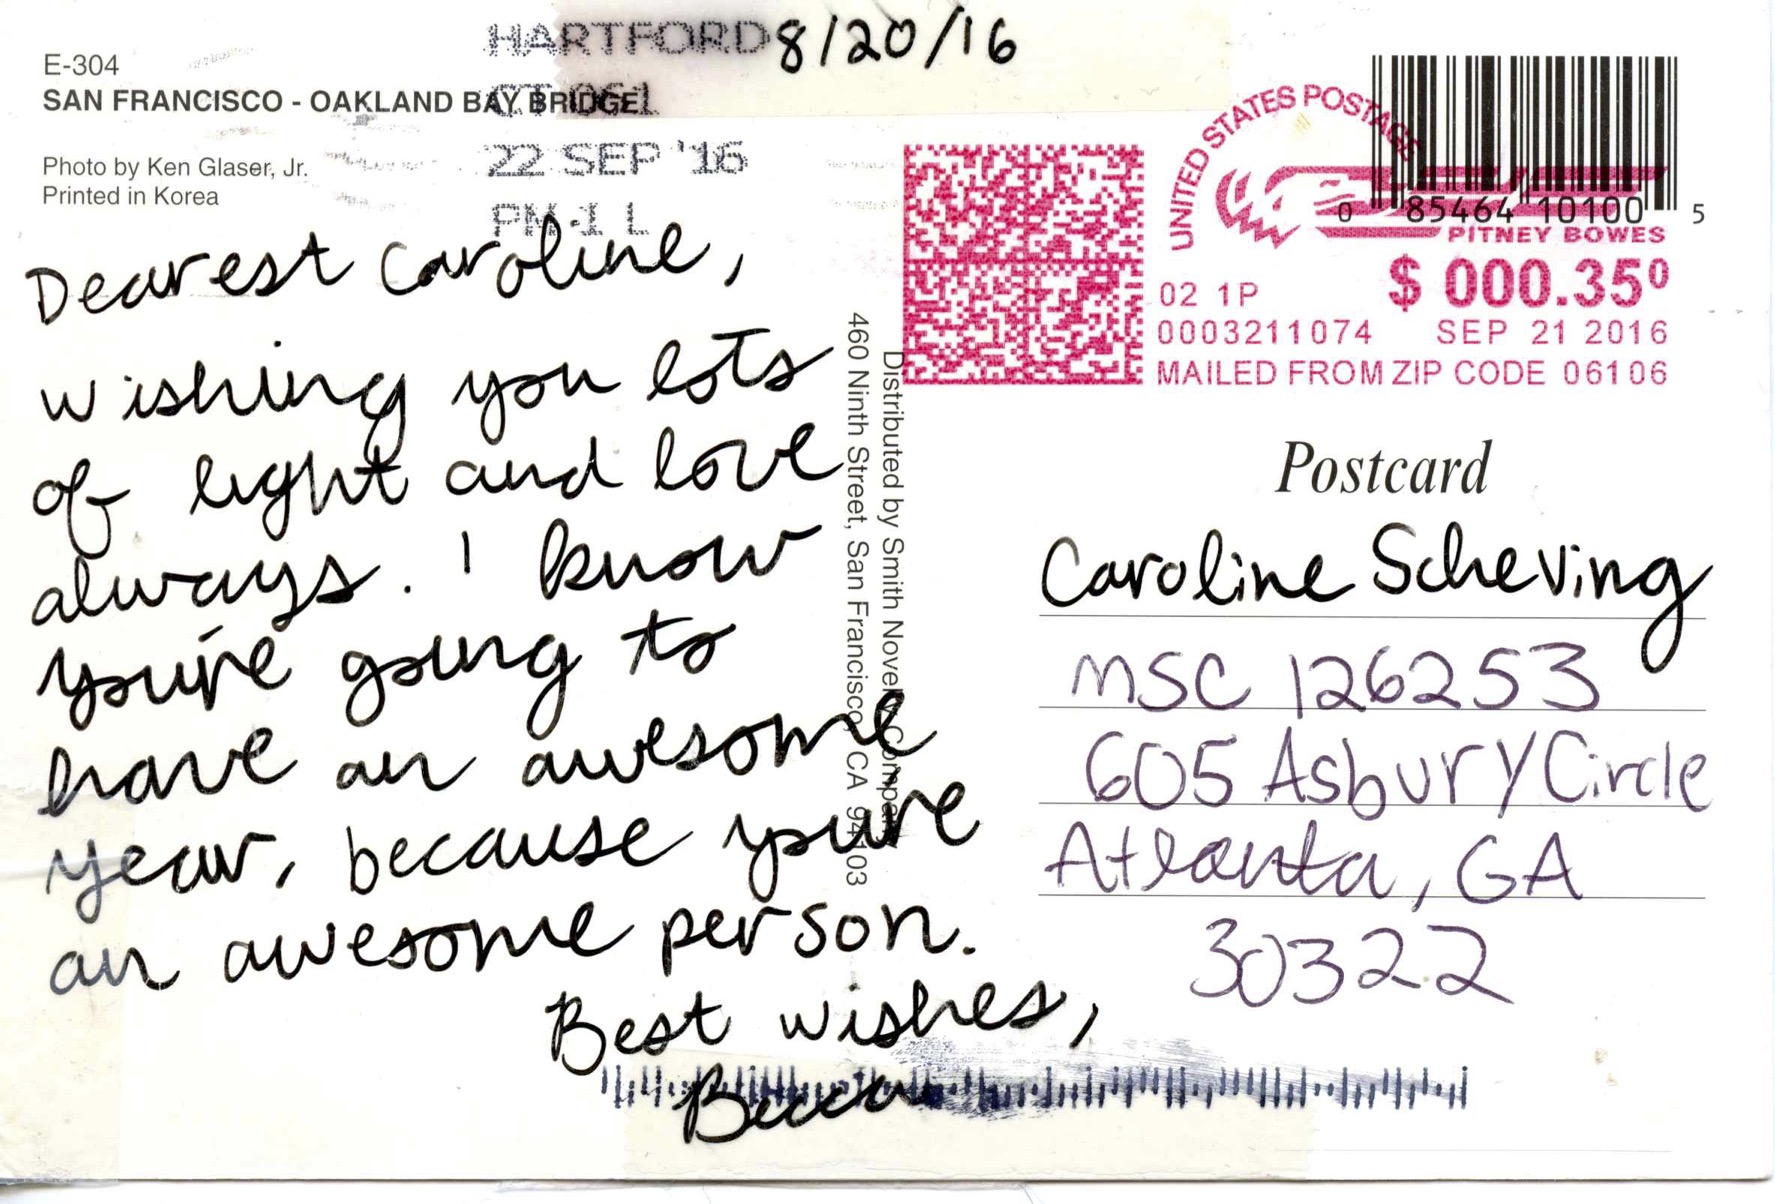 HARTFORD 8/20/16
CT 061
22 SEP '16
PM 1 L
E-304
SAN FRANCISCO - OAKLAND BAY BRIDGE
Photo by Ken Glaser, Jr.
Printed in Korea
Dearest Caroline,
wishing you lots
of light and love
always. I know
you're going to
have an awesome
year, because you're
an awesome person.
Best wishes,
Becca
Distributed by Smith Novelty Company
460 Ninth Street, San Francisco, CA 94103
UNITED STATES POSTAGE
0 85464 10100 5
PITNEY BOWES
02 1P $ 000.35⁰
0003211074 SEP 21 2016
MAILED FROM ZIP CODE 06106
Postcard
Caroline Scheving
MSC 126253
605 Asbury Circle
Atlanta, GA
30322